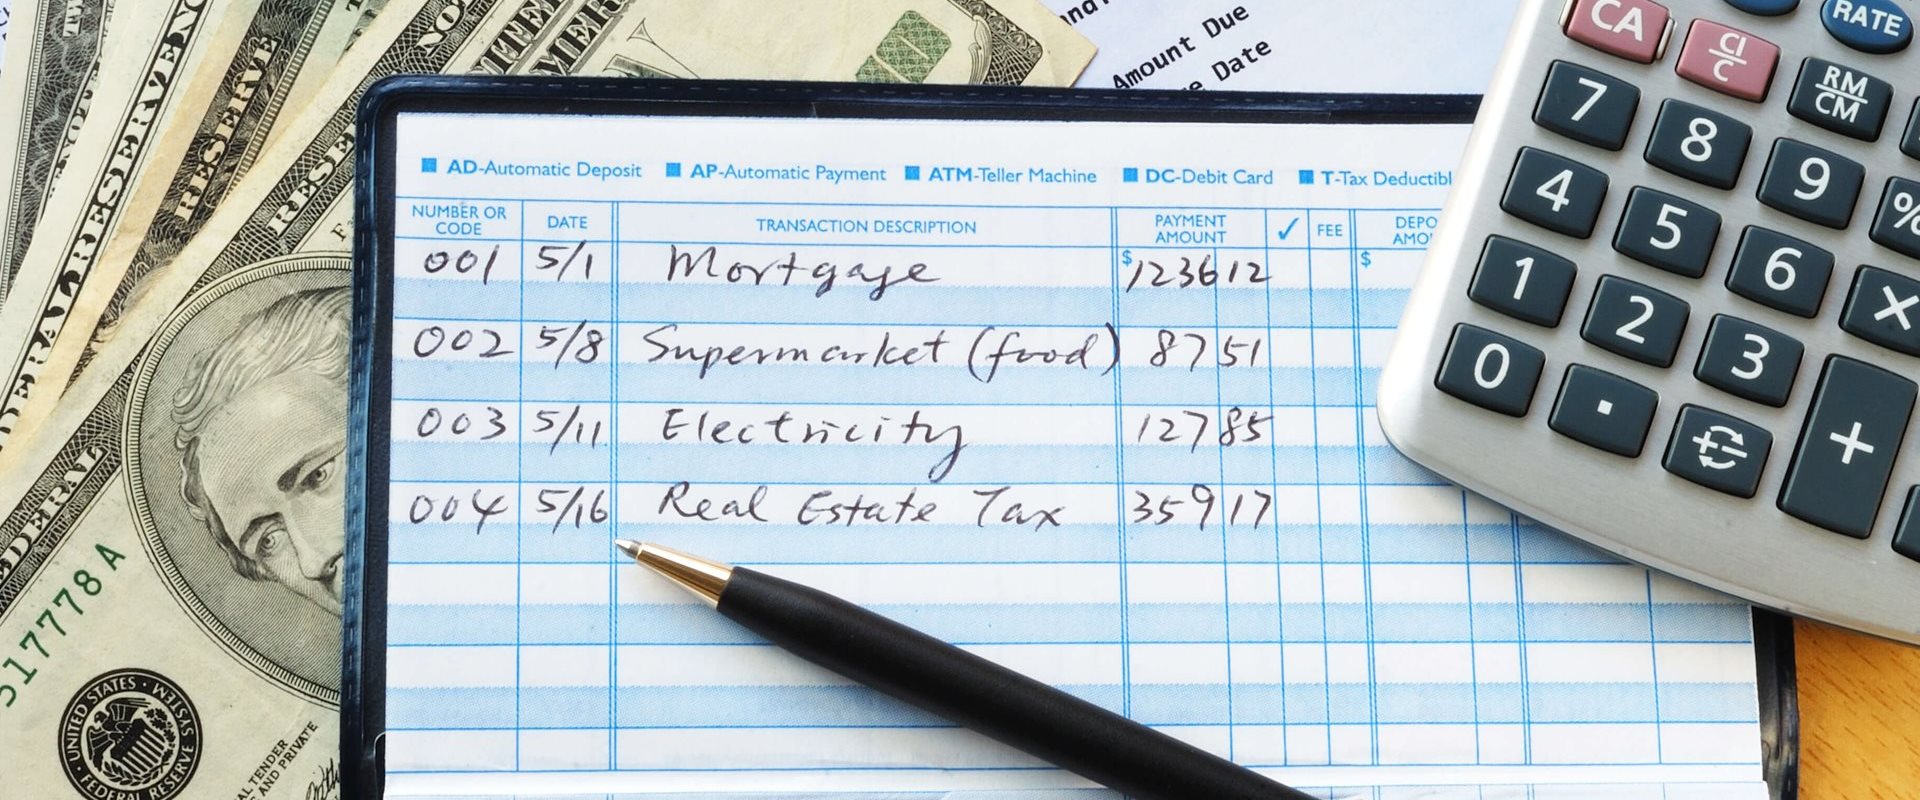 and
Amount Due
e Date
NOT
RESERVE NO
RESERVE
RESE
NO
UNITED
AMER
FEDERAL RESERVE
FEDERAL
517778 A
UNITED STATES
FEDERAL RESERVE SYSTEM
AL TENDER
AND PRIVATE
AD-Automatic Deposit AP-Automatic Payment ATM-Teller Machine DC-Debit Card T-Tax Deductibl
NUMBER OR CODE DATE TRANSACTION DESCRIPTION PAYMENT AMOUNT ✓ FEE DEPO AMO
001 5/1 Mortgage $123612 $
002 5/8 Supermarket (food) 8751
003 5/11 Electricity 12785
004 5/16 Real Estate Tax 35917
CA CI/C RATE
RM/CM
7 8 9 %
4 5 6 ×
1 2 3 +
0 .